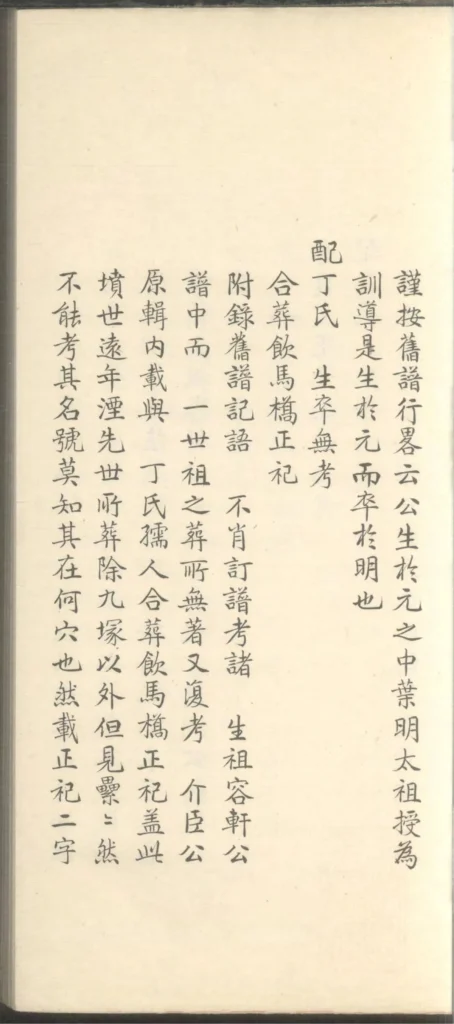 謹按舊譜行畧云公生於元之中葉明太祖授為
訓導是生於元而卒於明也
配丁氏 生卒無考
合葬飲馬橋正祀
附錄舊譜記語 不肖訂譜考諸 生祖容軒公
譜中而 一世祖之葬所無著又復考 介臣公
原輯內載與 丁氏孺人合葬飲馬橋正祀盖此
墳世遠年湮先世所葬除九塚以外但見纍〻然
不能考其名號莫知其在何穴也然載正祀二字